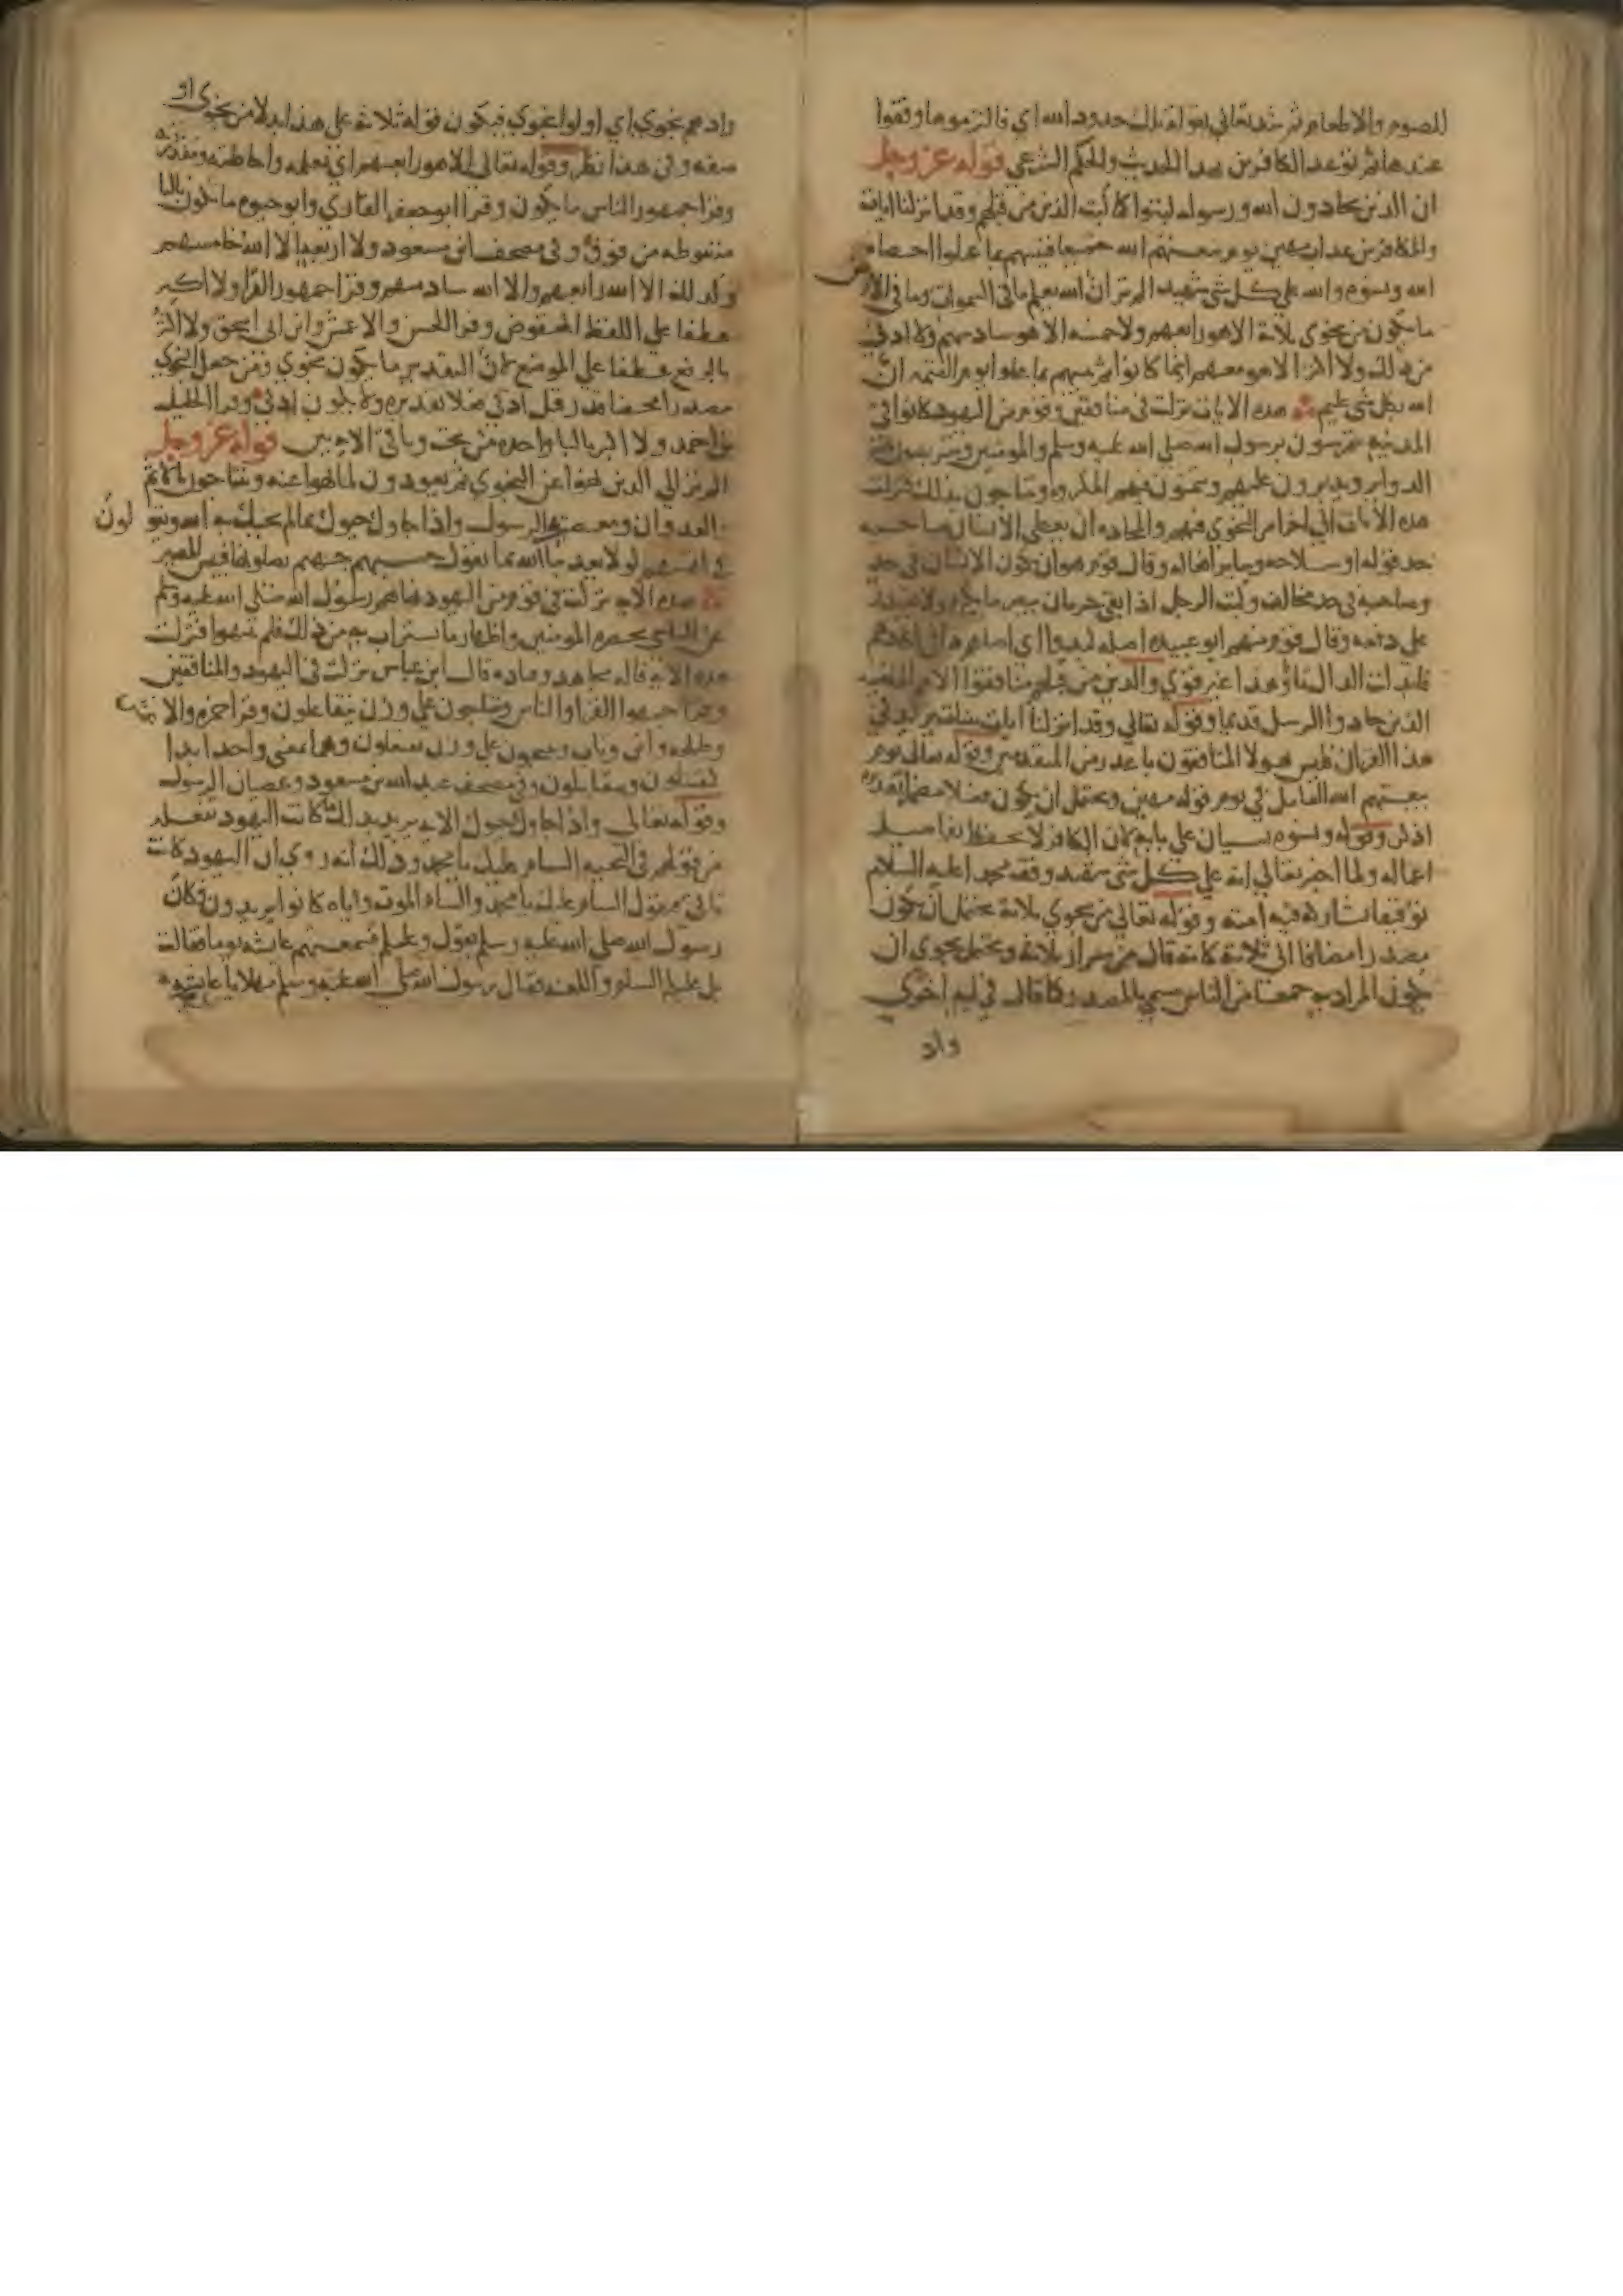 للصوم والاطعام ثم شدد تعالى بقوله تلك حدود الله اي فالتزموها وقفوا
عندها ثم توعد الكافرين بهذا الحديث والحكم الشرعي قوله عز وجل
ان الذين يحادون الله ورسوله كبتوا كما كبت الذين من قبلهم وقد انزلنا ايات
وللكافرين عذاب مهين يوم يبعثهم الله جميعا فينبهم بما عملوا احصاه
الله ونسوه والله على كل شي شهيد الم تر ان الله يعلم ما في السموات وما في الارض
ما يكون من نجوى ثلاثة الا هو رابعهم ولا خمسة الا هو سادسهم ولا ادنى
من ذلك ولا اكثر الا هو معهم اينما كانوا ثم ينبهم بما عملوا يوم القيمه ان
الله بكل شي عليم هذه الايات نزلت في منافقين وقوم من اليهود كانوا في
المدينه يتمرسون برسول الله صلى الله عليه وسلم والمومنين ويتربصون بهم
الدواير ويديرون عليهم ويتمنون فيهم المكروه ويتناجون بذلك فنزلت
هذه الايات الى اخر امر النجوى فيهم والمحاده ان يعطي الانسان صاحبه
حد قوله او سلاحه وساير افعاله وقال قوم هو ان يكون الانسان في حد
وصاحبه في حد مخالف وكبت الرجل اذا بقي خزيان يبصر ما يكره ولا يقدر
على دفعه وقال قوم منهم ابو عبيده اصله كبدوا اي اصابهم داء في اكبادهم
فابدلت الدال تاء وهذا غير قوي والذين من قبلهم منافقوا الامم الماضيه
الذين حادوا الرسل قديما وقوله تعالى وقد انزلنا ايات بينات يريد في
هذا القران فليس هولا المنافقون باعذر من المتقدمين وقوله تعالى يوم
يبعثهم الله العامل في يوم قوله مهين ويحتمل ان يكون فعلا مضمرا تقديره
اذكر وقوله ونسوه نسيان على بابه لان الكافر لا يحفظ تفاصيل
اعماله ولما اخبر تعالى انه على كل شي شهيد وقف محمدا عليه السلام
توقيفا تشاركه فيه امته وقوله تعالى من نجوى ثلاثة يحتمل ان يكون
مصدرا مضافا الى ثلاثة كانه قال من سرار ثلاثة ويحتمل نجوى ان
يكون المراد به جمعا من الناس سمي بالمصدر كما قال في اية اخرى
واد
واذ هم نجوى اي اولوا نجوى فيكون قوله ثلاثة على هذا بدلا من نجوى او
صفه وفي هذا نظر وقوله تعالى الا هو رابعهم اي بعلمه واحاطته ومقدرته
وقرا جمهور الناس ما يكون وقرا ابو جعفر القاري وابو حيوه ما تكون بالتا
منقوطه من فوق وفي مصحف ابن مسعود ولا اربعة الا الله خامسهم
وكذلك الا الله رابعهم والا الله سادسهم وقرا جمهور القرا ولا اكثر
عطفا على اللفظ المخفوض وقرا الحسن والاعمش وابن ابي اسحق ولا اكثر
بالرفع عطفا على الموضع لان التقدير ما يكون نجوى ومن جعل النجوى
مصدرا محضا قدر قبل ادنى فعلا تقديره ولا يكون ادنى وقرا الخليل
بن احمد ولا اكبر بالبا واحده من تحت وباقي الاية بين قوله عز وجل
الم تر الى الذين نهوا عن النجوى ثم يعودون لما نهوا عنه ويتناجون بالاثم
والعدوان ومعصية الرسول واذا جاوك حيوك بما لم يحيك به الله ويقولون
في انفسهم لولا يعذبنا الله بما نقول حسبهم جهنم يصلونها فبيس المصير
هذه الايه نزلت في قوم من اليهود نهاهم رسول الله صلى الله عليه وسلم
عن التناجي بحضرة المومنين واظهار ما يستراب به من ذلك فلم ينتهوا فنزلت
هذه الايه قاله مجاهد وقتاده وقال ابن عباس نزلت في اليهود والمنافقين
وقرا جمهور القرا والناس ويتناجون على وزن يتفاعلون وقرا حمزه والاعمش
وطلحه وابن وثاب وينتجون على وزن يفتعلون وهما بمعنى واحد ابدا
كيقتتلون ويتقاتلون وفي مصحف عبد الله بن مسعود وعصيان الرسول
وقوله تعالى واذا جاوك حيوك الايه يريد بذلك ما كانت اليهود تفعله
من قولهم في التحيه السام عليك يا محمد وذلك انه روي ان اليهود كانت
تاتي فتقول السام عليك يا محمد والسام الموت واياه كانوا يريدون فكان
رسول الله صلى الله عليه وسلم يقول وعليكم فسمعتهم عايشه يوما فقالت
بل عليكم السام واللعنه فقال رسول الله صلى الله عليه وسلم مهلا يا عايشه